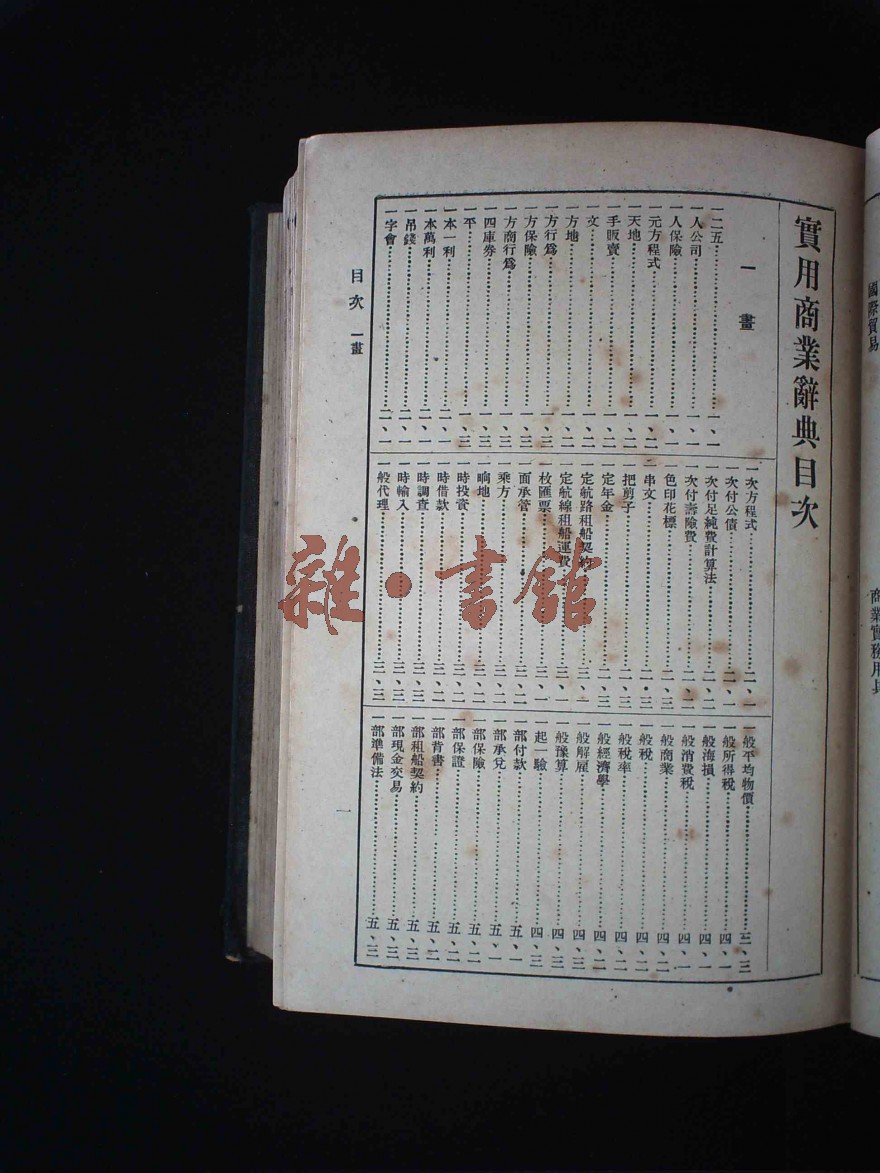 實用商業辭典目次
一畫
一二五……一、一
一人公司……一、一
一人保險……一、一
一元方程式……一、二
一天地……一、二
一手販賣……一、二
一文……一、二
一方地……一、二
一方行爲……一、三
一方保險……一、三
一方商行爲……一、三
一四庫券……一、三
一平……一、三
一本一利……二、一
一本萬利……二、一
一吊錢……二、一
一字會……二、一
一次方程式……二、一
一次付公債……二、一
一次付足純費計算法……二、二
一次付壽險費……二、二
一色印花標……二、二
一串文……二、三
一把剪子……二、三
一定年金……二、三
一定航路租船契約……三、一
一定航線租船運費
一枚匯票……三、一
一面承管……三、二
一乘方……三、二
一晌地……三、二
一時投資……三、二
一時借款……三、二
一時調查……三、三
一時輸入……三、三
一般代理……三、三
一般平均物價……三、三
一般所得稅……四、一
一般海損……四、一
一般消費稅……四、一
一般商業……四、二
一般稅……四、二
一般稅率……四、二
一般經濟學……四、二
一般解雇……四、三
一般豫算……四、三
一起一驗……四、三
一部付款……五、一
一部承兌……五、一
一部保險……五、二
一部保證……五、二
一部背書……五、二
一部租船契約……五、三
一部現金交易……五、三
一部準備法……五、三
目次 一畫
一
國際貿易
商業實務用具
雜·書館